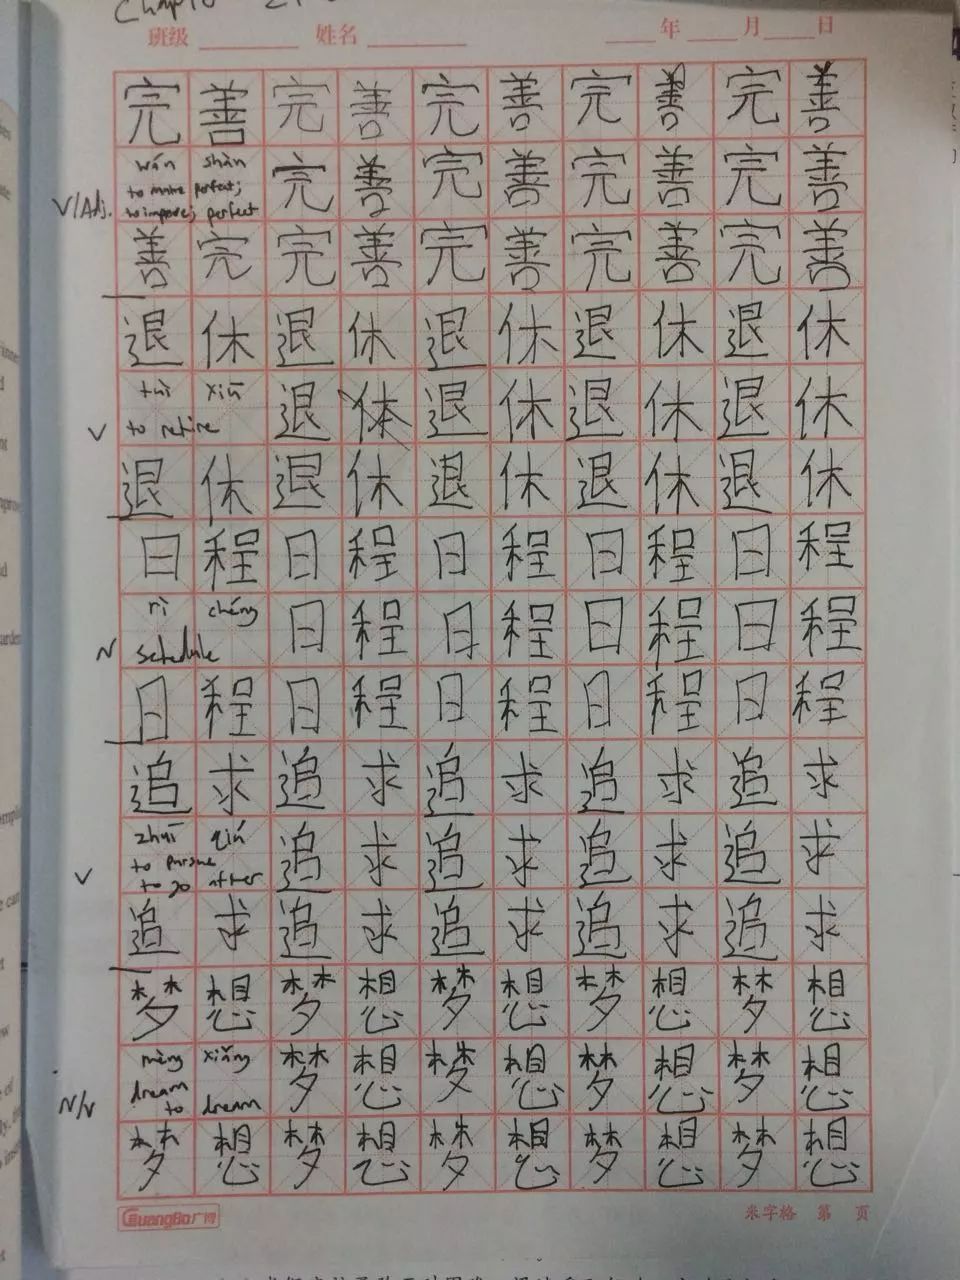 班级 姓名 年 月 日
完 善 完 善 完 善 完 善 完 善
wán shàn 完 善 完 善 完 善 完 善
V/Adj. to make perfect;
to improve; perfect
善 完 完 善 完 善 完 善 完 善
退 休 退 休 退 休 退 休 退 休
tuì xiū 退 体 退 休 退 休 退 休
V to retire
退 休 退 休 退 休 退 休 退 休
日 程 日 程 日 程 日 程 日 程
rì chéng 日 程 日 程 日 程 日 程
N schedule
日 程 日 程 日 程 日 程 日 程
追 求 追 求 追 求 追 求 追 求
zhuī qiú 追 求 追 求 追 求 追 求
to pursue
V to go after
追 求 追 求 追 求 追 求 追 求
梦 想 梦 想 梦 想 梦 想 梦 想
mèng xiǎng 梦 想 梦 想 梦 想 梦 想
dream
N/V to dream
梦 想 梦 想 梦 想 梦 想 梦 想
GuangBo广博 米字格 第 页